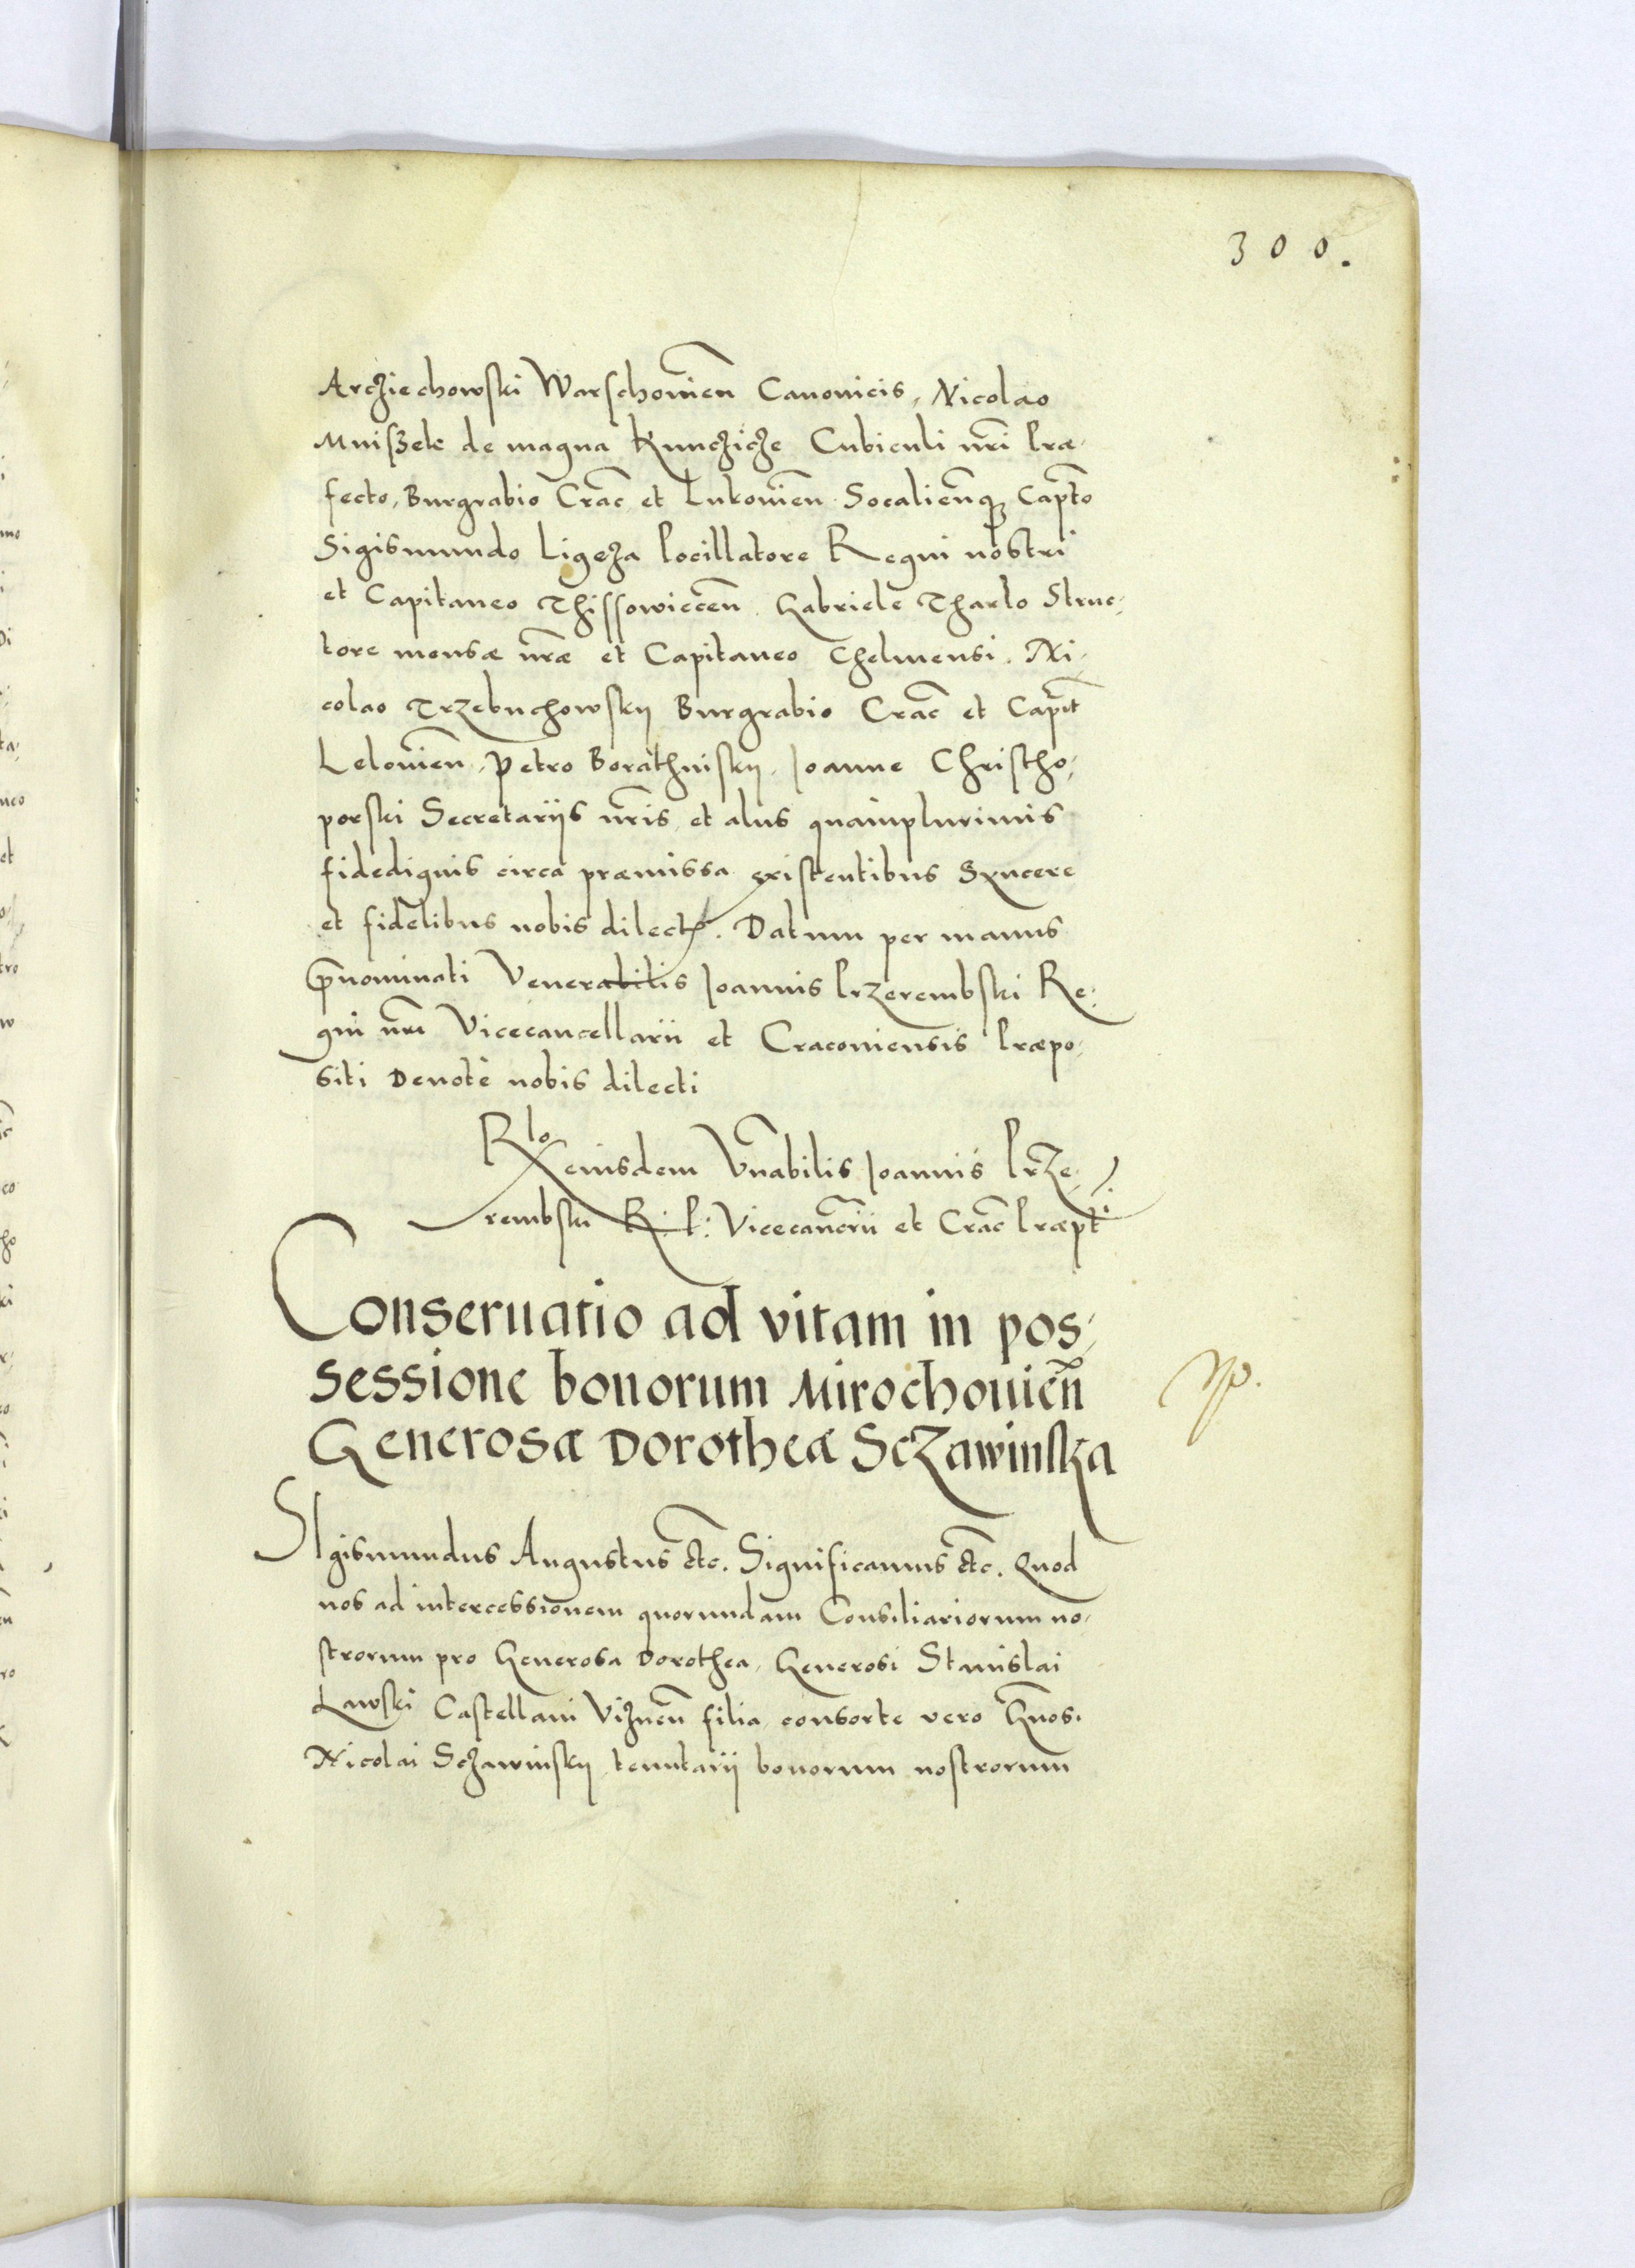 300.
Arcziechowski Warschouien Canonicis, Nicolao
Mniszek de magna Kunczicze Cubiculi nri Præ-
fecto, Burgrabio Crac et Lukouien Socalienq₃ Capto
Sigismundo Ligęza Pocillatore Regni nostri
et Capitaneo Thissowiecen. Gabriele Tharlo Struc-
tore mensæ nræ et Capitaneo Chelmensi. Ni-
colao Trzebuchowsky Burgrabio Crac et Capit
Lelouien, Petro Borathinsky, Ioanne Christho-
porski Secretariis nris et aliis quamplurimis
fidedignis circa præmissa existentibus Syncere
et fidelibus nobis dilectis. Datum per manus
Prænominati Venerabilis Ioannis Przerembski Re-
gni nri Vicecancellarii et Cracouiensis Præpo-
siti Deuotè nobis dilecti
Rlo eiusdem Vnabilis Ioannis Prze-
rembski R. P. Vicecancrii et Crac Præpti
Conseruatio ad vitam in pos-
sessione bonorum Mirochouien
Generosæ Dorotheæ Sczawinska
SIgismundus Augustus etc. Significamus etc. Quod
nos ad intercessionem quorundam Consiliariorum no-
strorum pro Generosa Dorothea, Generosi Stanislai
Lawski Castellani Viznen filia, consorte vero Gnosi
Nicolai Sczawinsky tenutarii bonorum nostrorum